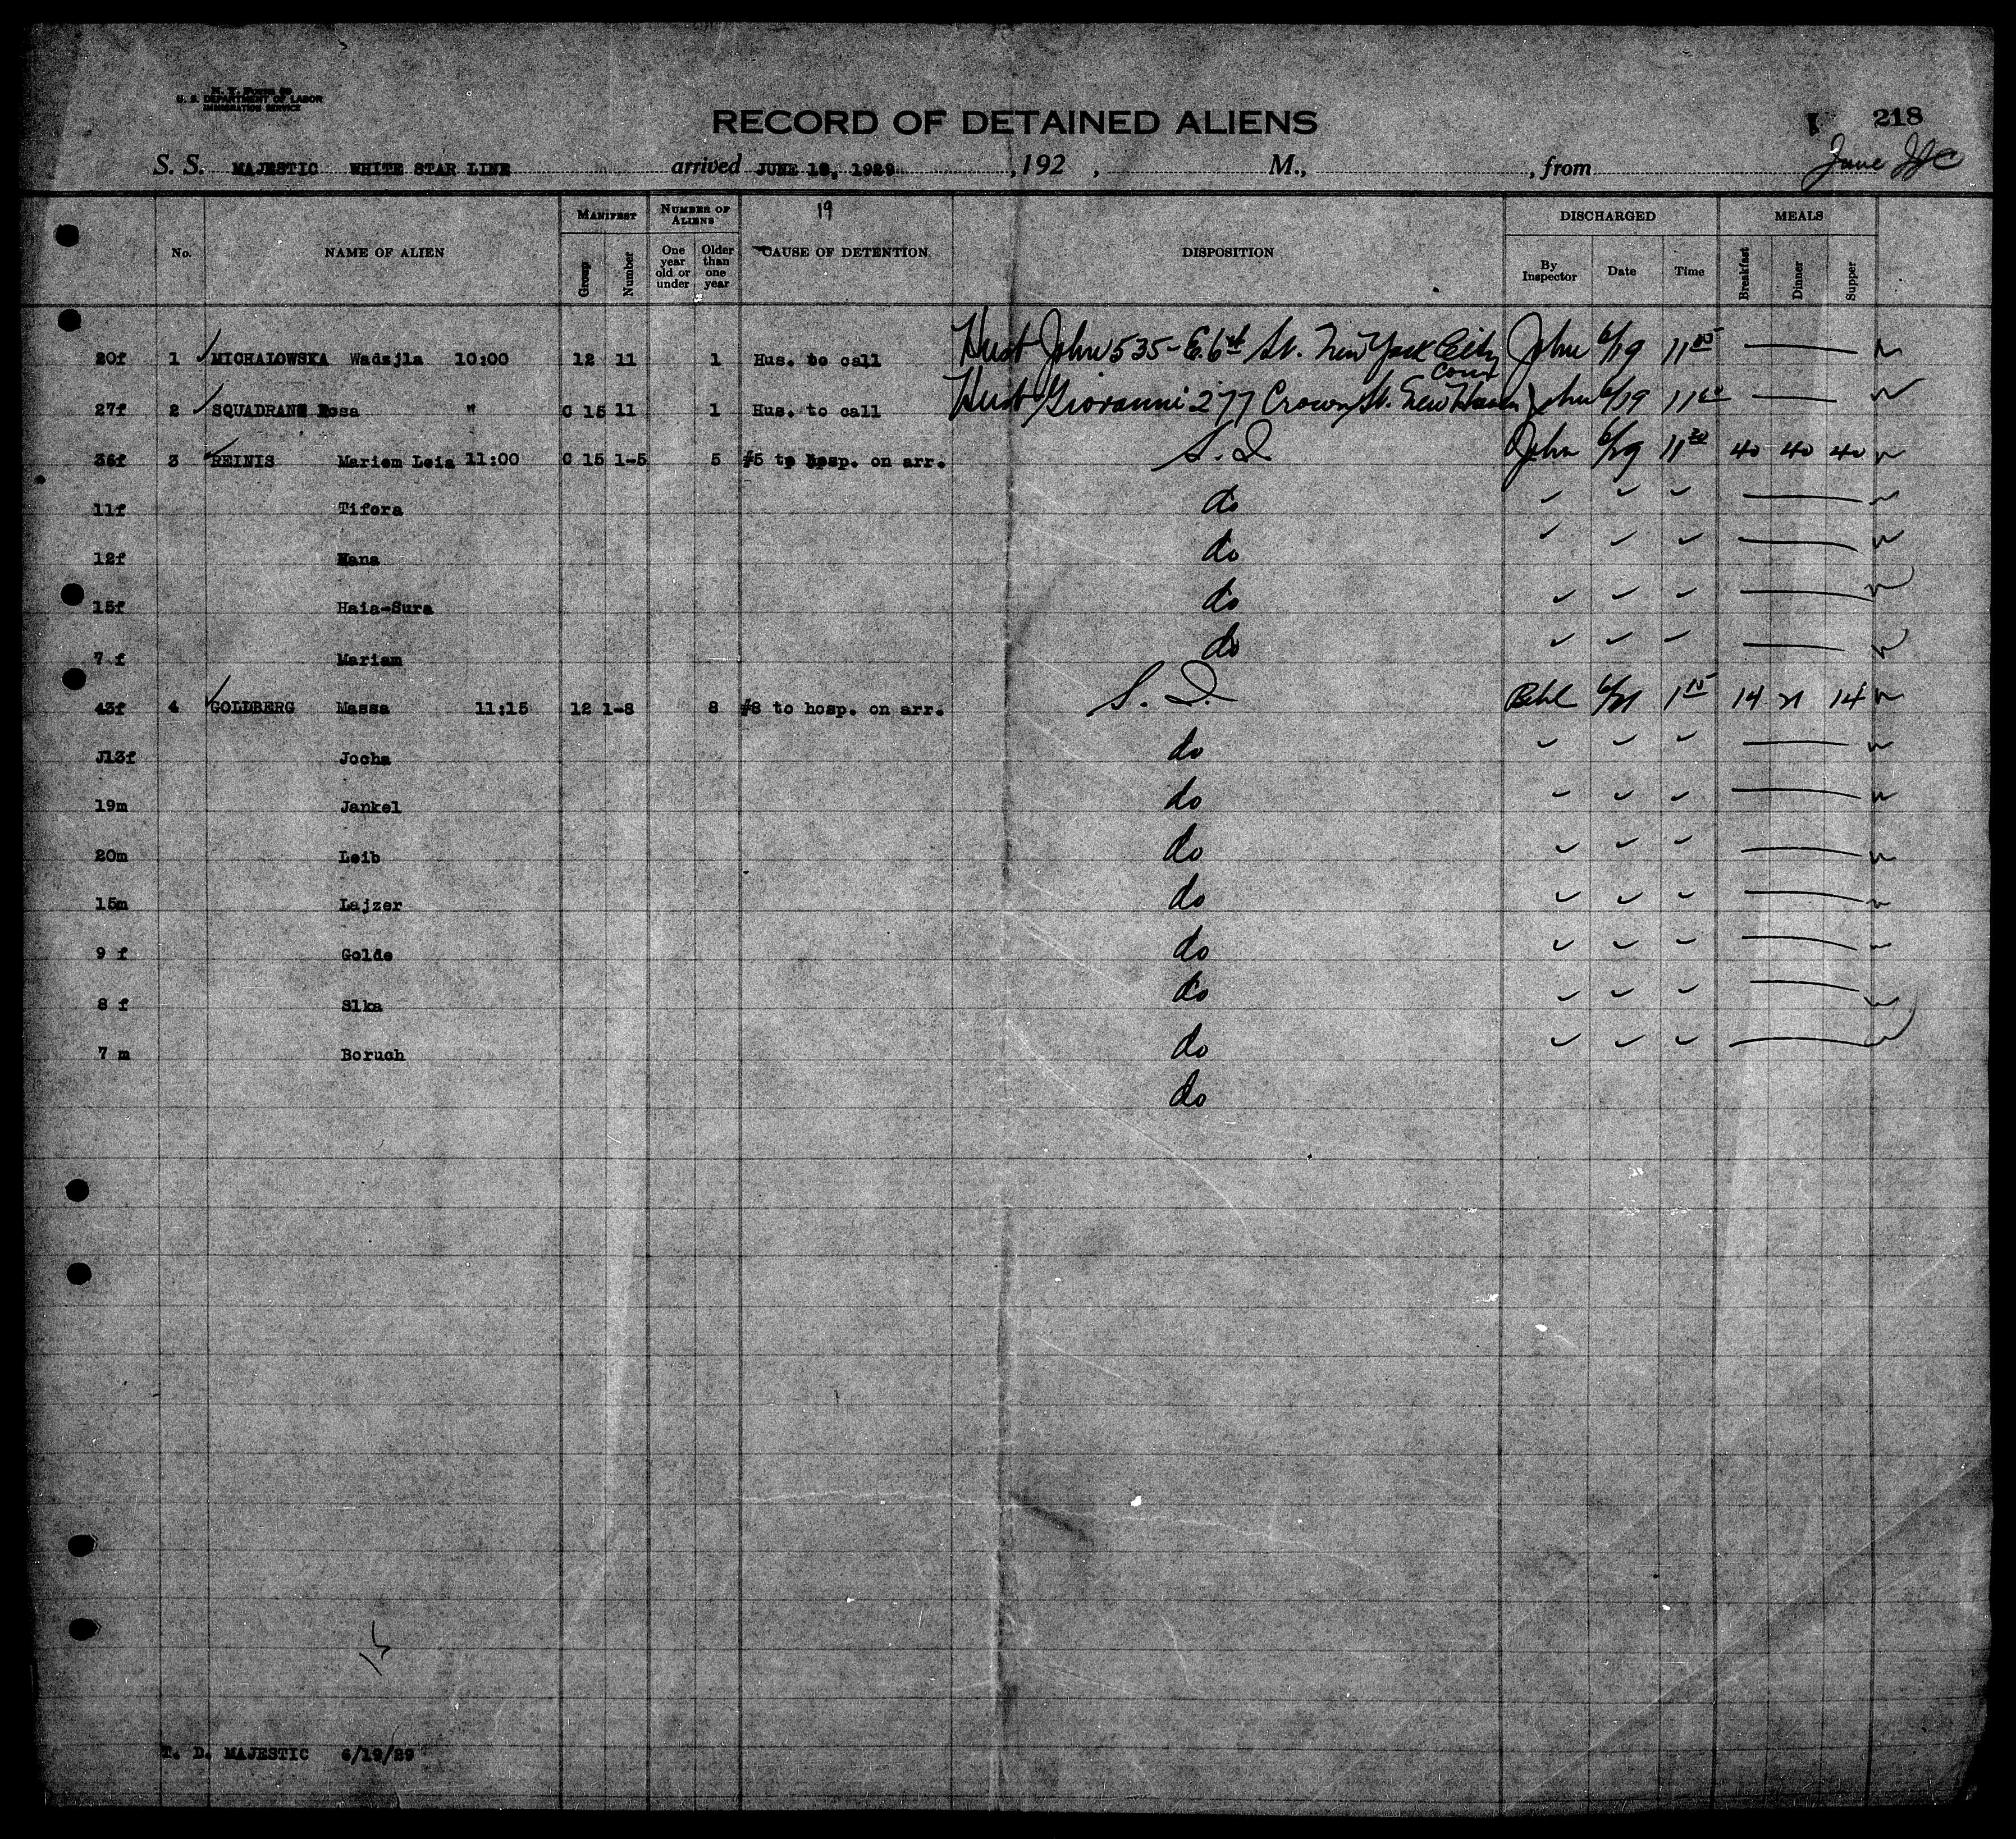 N. Y. Form 99
U. S. DEPARTMENT OF LABOR
IMMIGRATION SERVICE
218
RECORD OF DETAINED ALIENS
S. S. MAJESTIC WHITE STAR LINE arrived JUNE 18, 1929 , 192 , M., , from June
19
No. NAME OF ALIEN MANIFEST Group Number NUMBER OF ALIENS One year old or under Older than one year CAUSE OF DETENTION DISPOSITION DISCHARGED By Inspector Date Time MEALS Breakfast Dinner Supper
20f 1 MICHALOWSKA Wadsjla 10:00 12 11 1 Hus. to call Husb John 535- E. 6th St. New York City John 6/19 11
27f 2 SQUADRANE Rosa " C 15 11 1 Hus. to call Husb Giovanni 277 Crown St. New Haven Conn John 6/19 11
36f 3 REINIS Mariem Leia 11:00 C 15 1-5 5 #5 to hosp. on arr. S. I. John 6/29 11 30 40 40 40
11f Tifora do
12f Hana do
15f Haia-Sura do
7 f Mariam do
43f 4 GOLDBERG Massa 11:15 12 1-8 8 #8 to hosp. on arr. S. I. 1 15 14 21 14
J13f Jocha do
19m Jankel do
20m Leib do
15m Lajzer do
9 f Golde do
8 f Slka do
7 m Boruch do
do
15
T. D. MAJESTIC 6/19/29